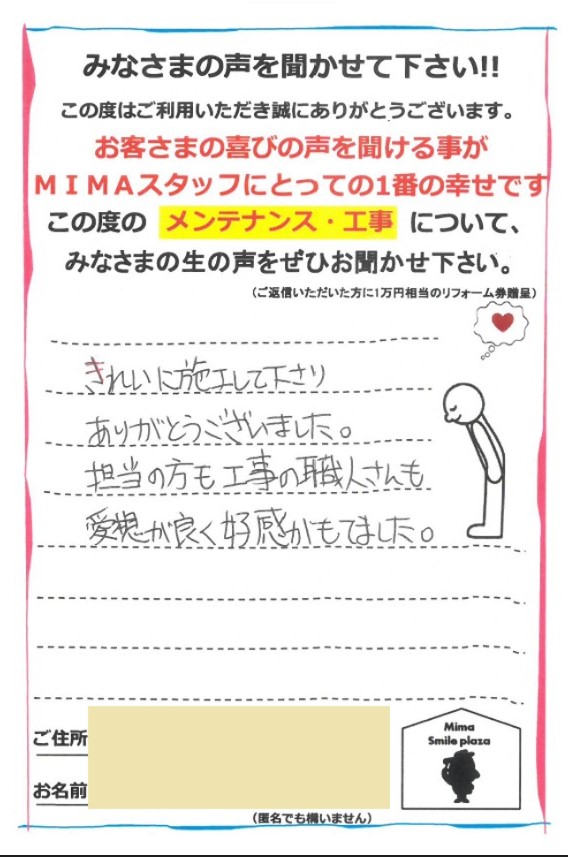 みなさまの声を聞かせて下さい!!
この度はご利用いただき誠にありがとうございます。
お客さまの喜びの声を聞ける事が
ＭＩＭＡスタッフにとっての1番の幸せです
この度の メンテナンス・工事 について、
みなさまの生の声をぜひお聞かせ下さい。
（ご返信いただいた方に1万円相当のリフォーム券贈呈）
きれいに施工して下さり
ありがとうございました。
担当の方も工事の職人さんも
愛想が良く好感がもてました。
ご住所
お名前
Mima
Smile plaza
（匿名でも構いません）